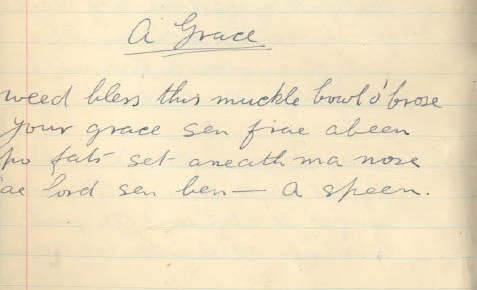 A Grace
weed bless this muckle bowl o' brose
Your grace sen frae abeen
fats set aneath ma nose
lord sen ben — A speen.